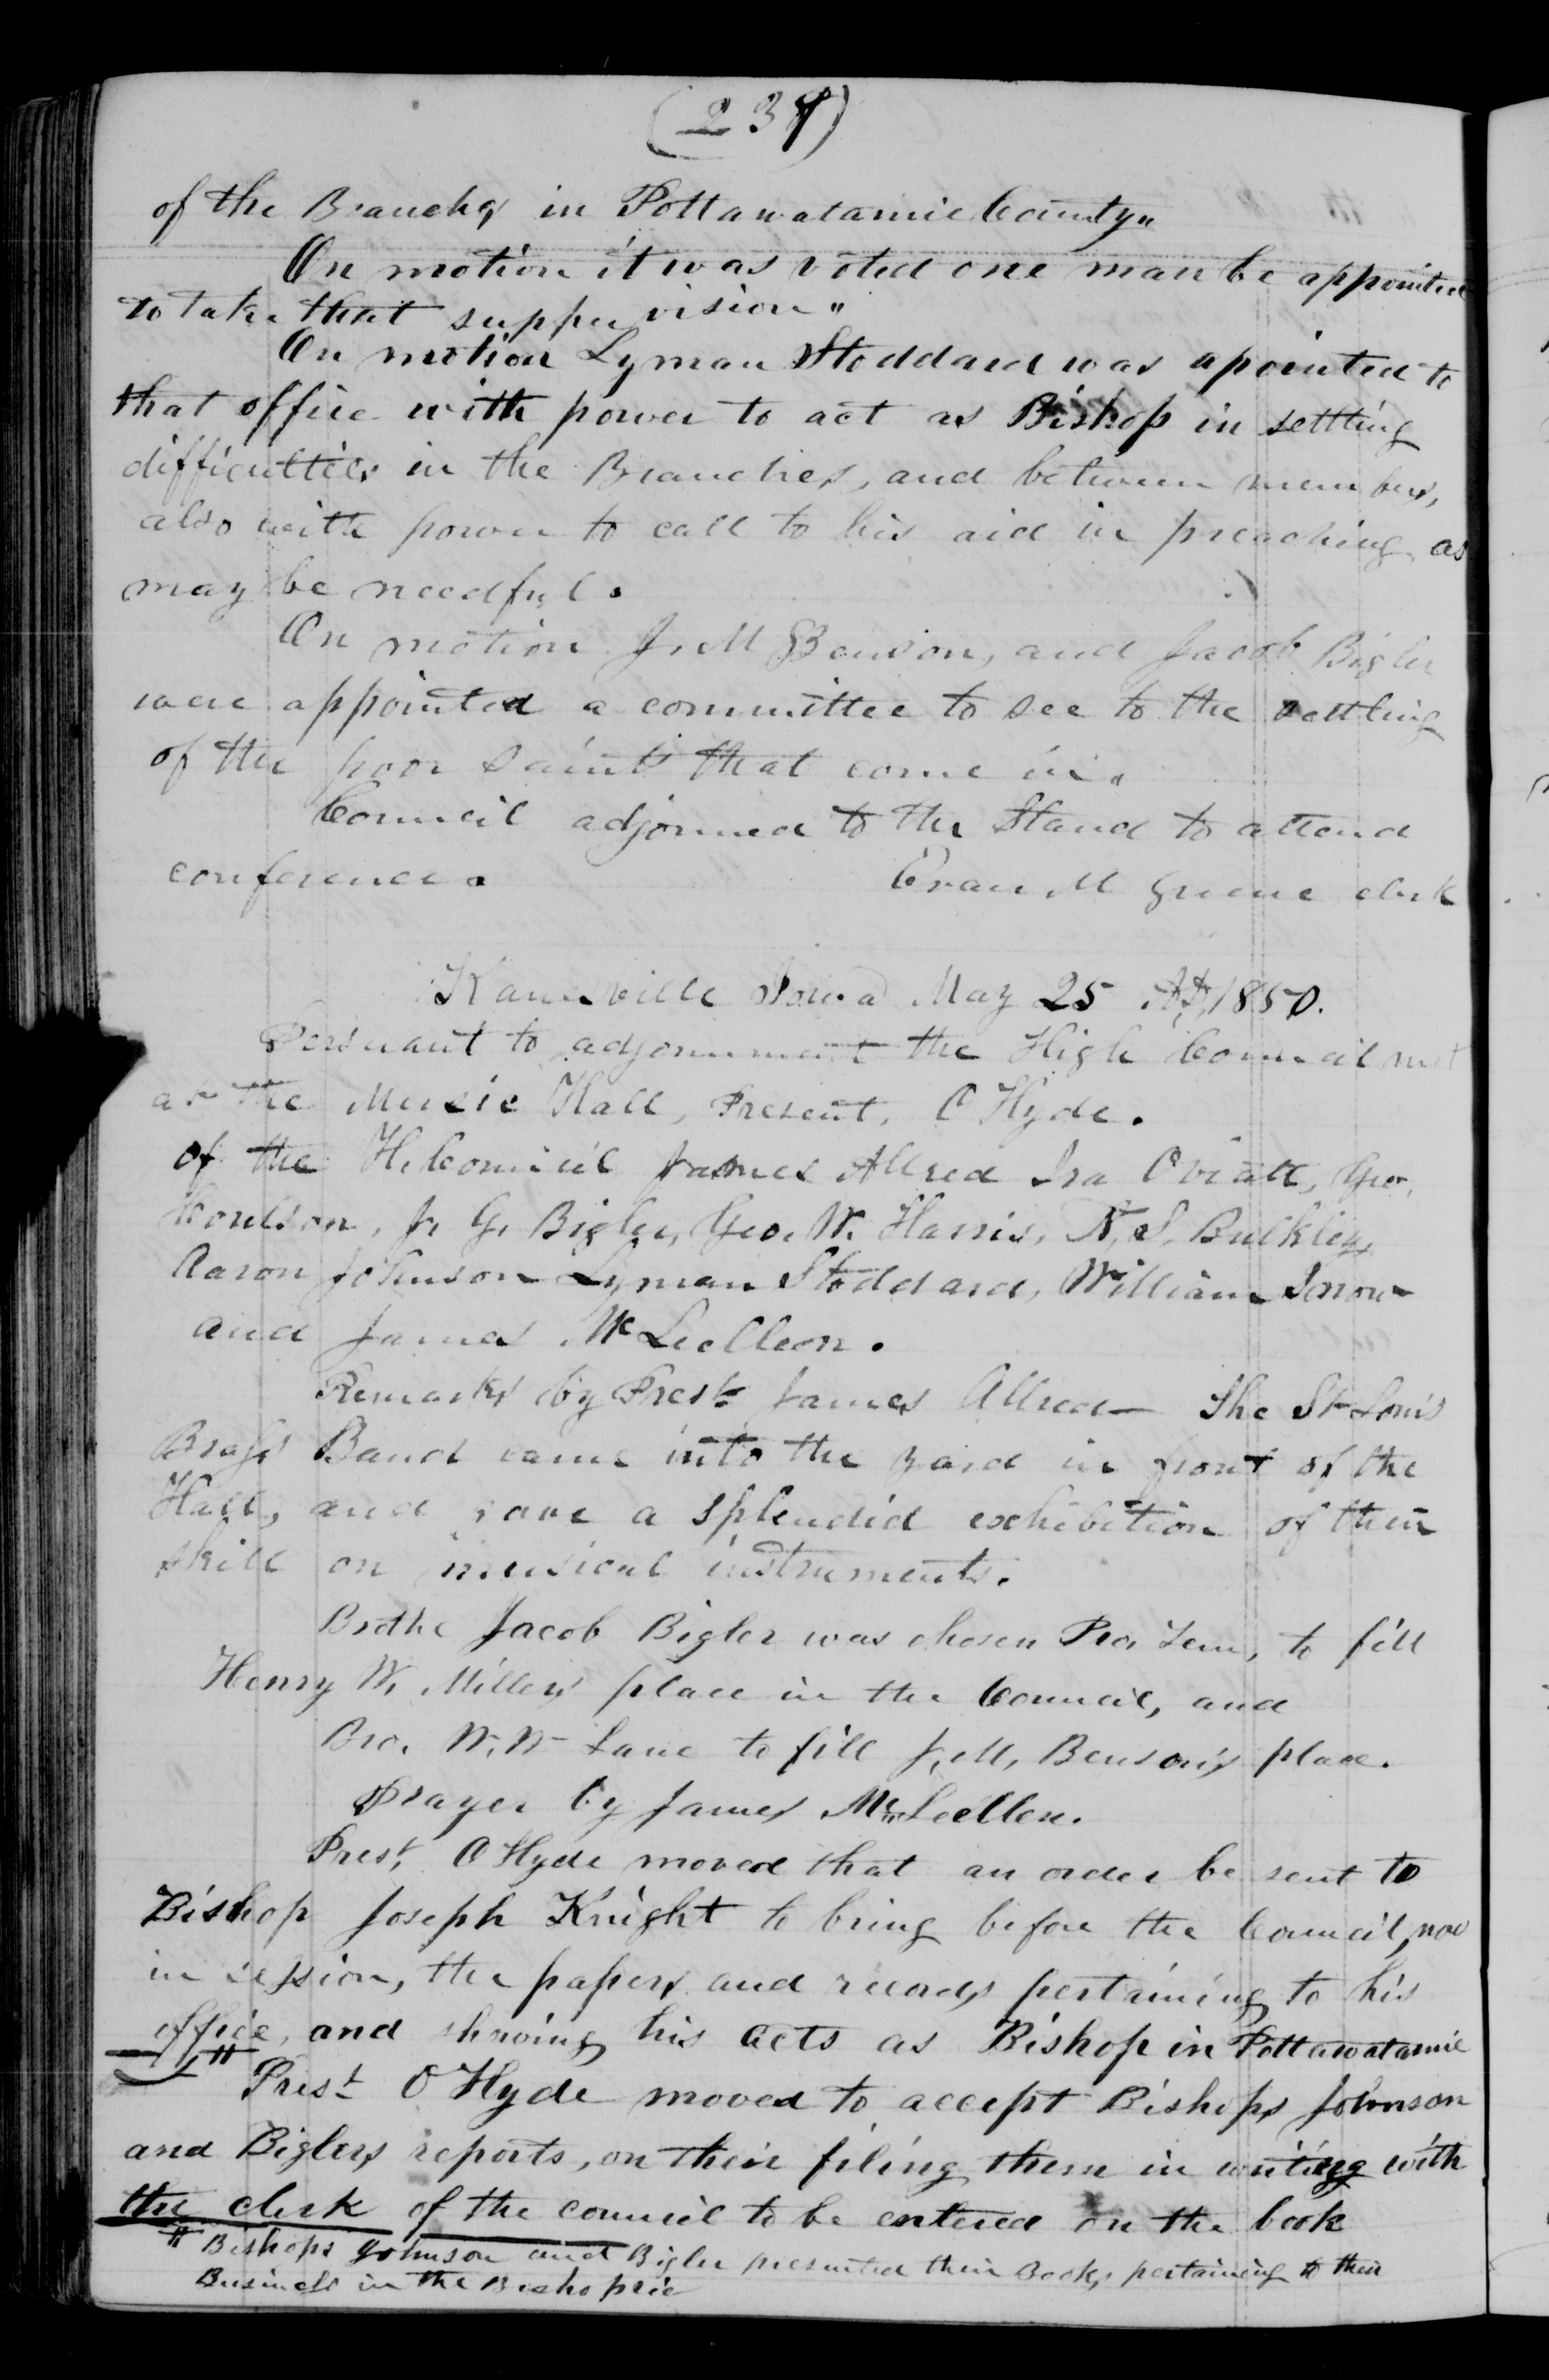 (238)
of the Branches in Pottawatamie County"
On motion it was voted one man be appointed
to take that suppervision"
On motion Lyman Stoddard was apointed to
that office with power to act as Bishop in settling
difficulties in the Branches, and between members,
also with power to call to his aid in preaching as
may be needful.
On motion J. M Benson, and Jacob Bigler
were appointed a committee to see to the settling
of the poor saints that come in"
Council adjorned to the Stand to attend
conference. Evan M Greene clerk
Kanesville Iowa May 25 AD, 1850.
Persuant to adjornment the High Council met
at the Music Hall, Present, O Hyde.
of the H. Council James Allred Ira Oviatt, Geo.
Coulson, J. G. Bigler, Geo. W. Harris, N. S. Bulkley,
Aaron Johnson Lyman Stoddard, William Snow
and James McLellen.
Remarks by Prest James Allred— The St Louis
Brass Band came into the yard in front of the
Hall, and gave a splendid exhibition of their
skill on musical instruments.
Brothe Jacob Bigler was chosen Pro, tem, to fill
Henry W. Millers place in the Council, and
Bro. W. W Lane to fill J. M, Benson's place.
Prayer by James McLellen.
Prest, O Hyde moved that an order be sent to
Bishop Joseph Knight to bring before the Council, now
in session, the papers and records pertaining to his
office, and shewing his acts as Bishop in Pottawatamie
#
Prest O Hyde moved to accept Bishops Johnson
and Biglers reports, on their filing them in writing with
the clerk of the council to be entered on the book
# Bishops Johnson and Bigler presented their Books pertaining to their
Business in the Bishopric